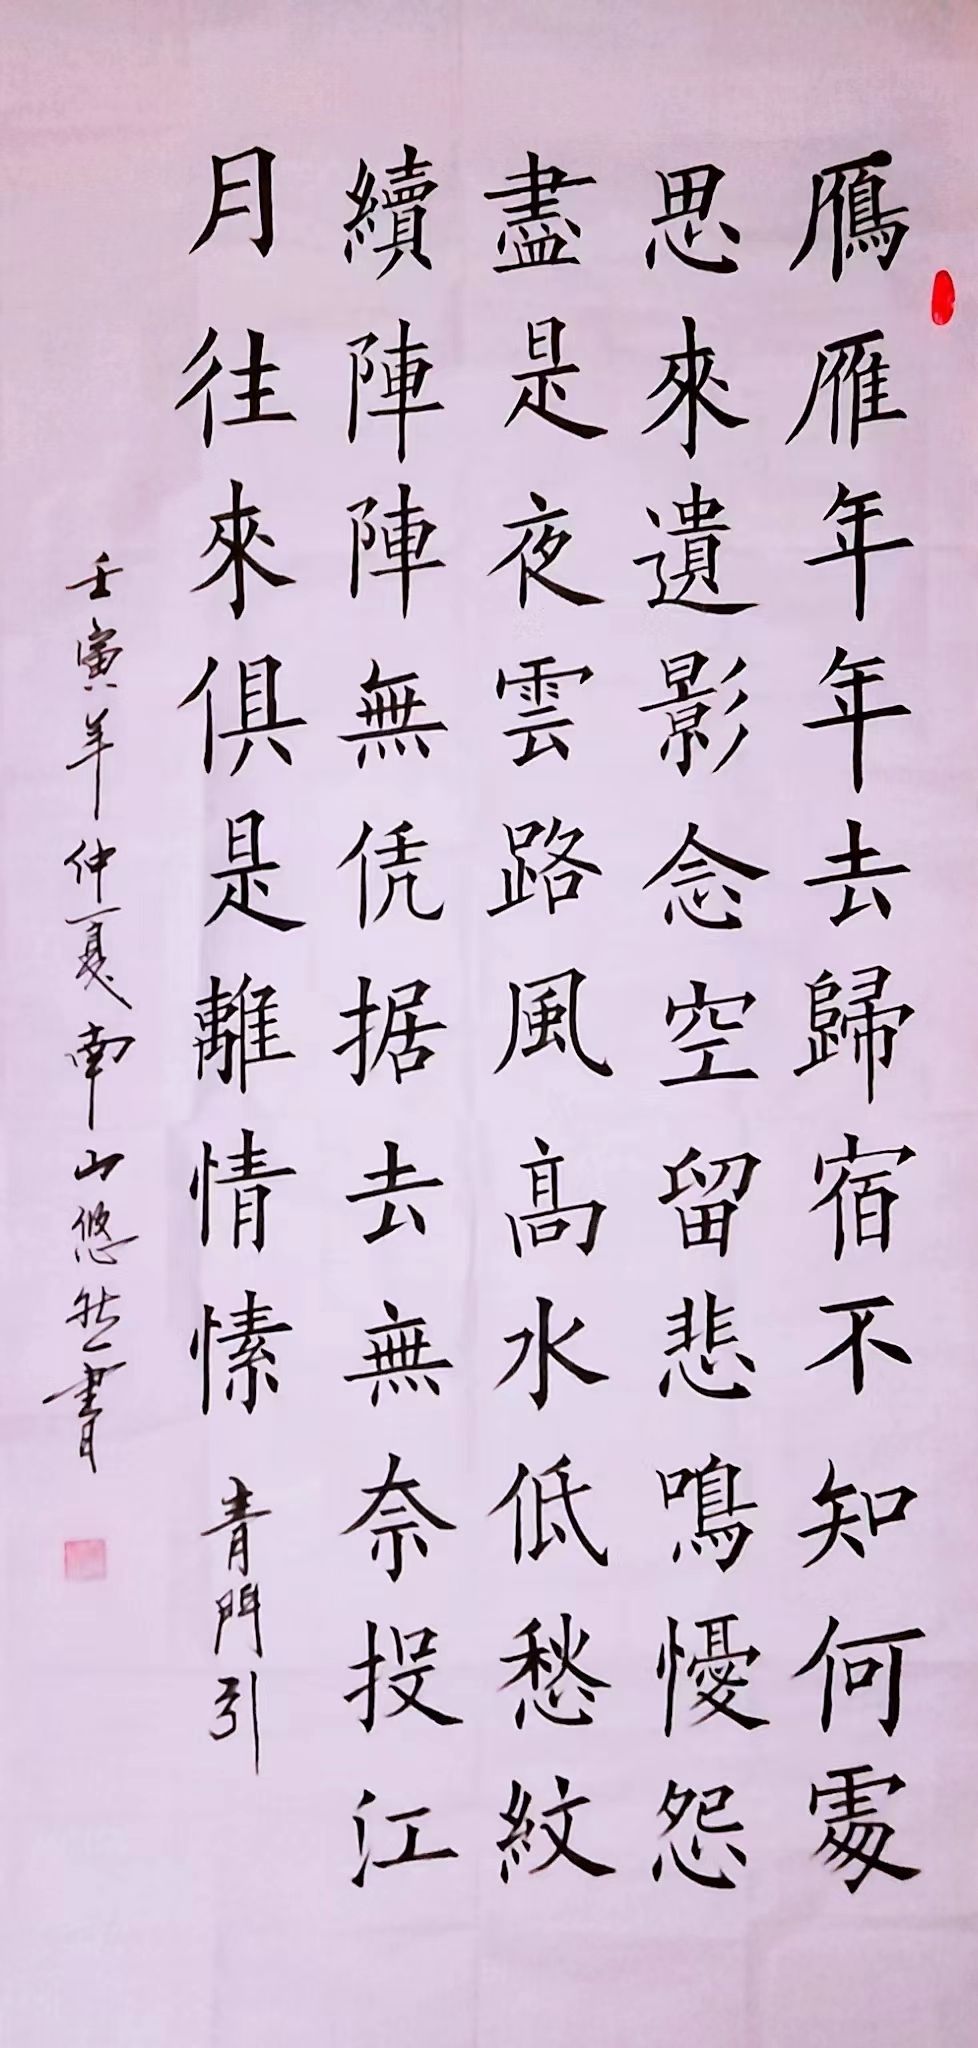 鴈雁年年去歸宿不知何處
思來遺影念空留悲鳴懮怨
盡是夜雲路風高水低愁紋
續陣陣無凭据去無奈投江
月往來俱是離情愫
青門引
壬寅年仲夏南山悠然書